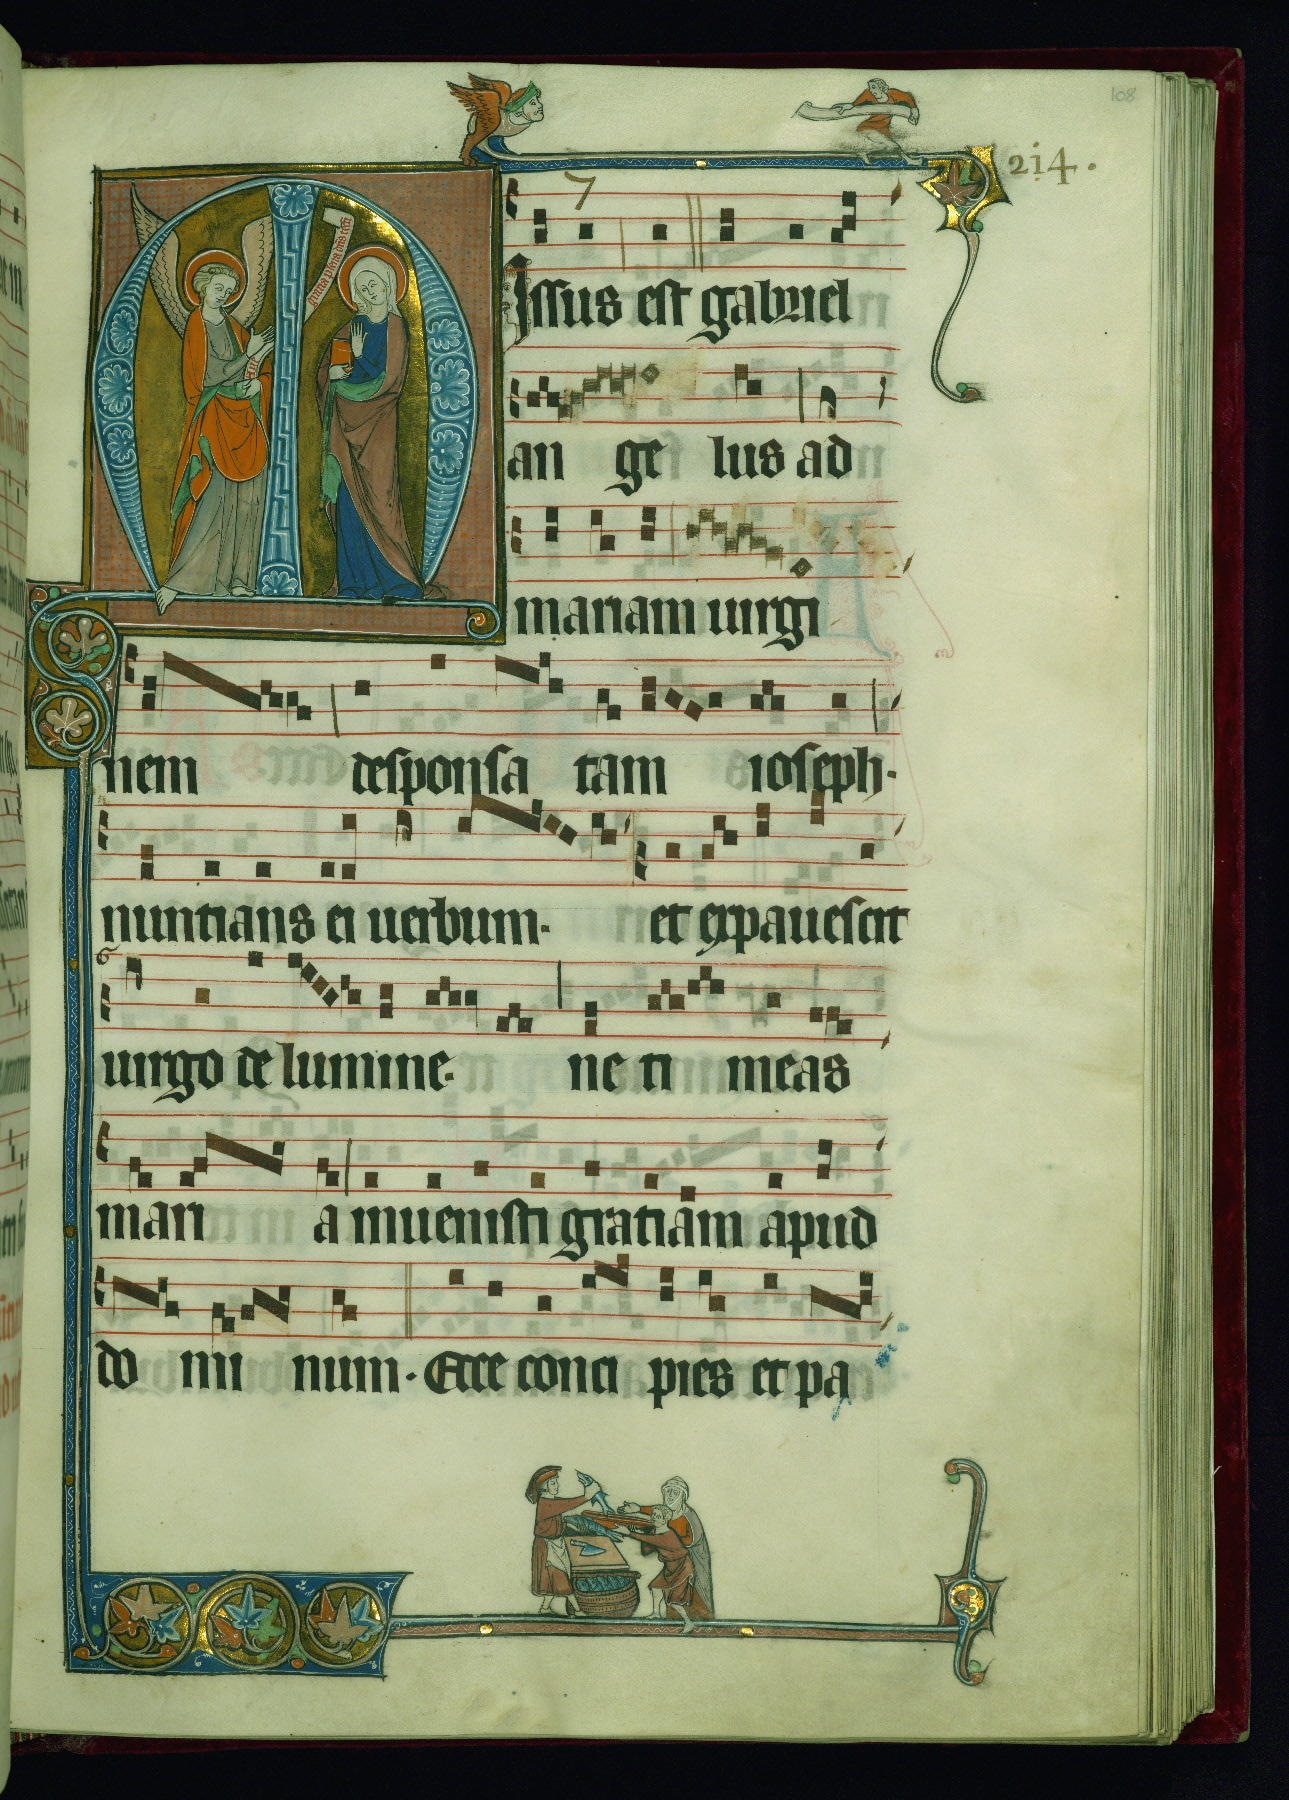 108
214.
7
gratia plena dns tecu
Missus est gabriel
an ge lus ad
mariam uirgi
nem desponsa tam ioseph.
nuntians ei uerbum. et expauescit
uirgo de lumine. ne ti meas
mari a inuenisti gratiam apud
do mi num. Ecce conci pies et pa